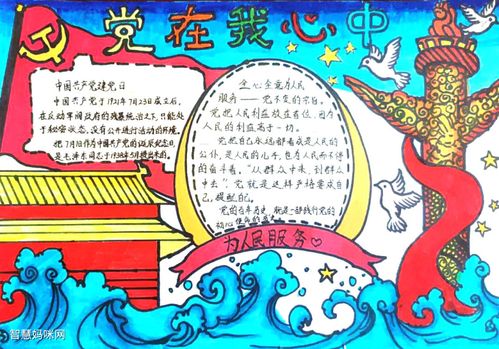 党在我心中
中国共产党建党日
中国共产党于1921年7月23日成立后，
在反动军阀政府的残暴统治之下，只能处
于秘密状态，没有公开进行活动的环境。
把7月1日作为中国共产党的诞辰纪念日，
是毛泽东同志于1938年5月提出来的。
全心全意为人民
服务——党不变的宗旨。
党把人民利益放在首位，因为
人民的利益高于一切。
党把自己永远都看成是人民的
公仆，是人民的儿子，也为人民而不停
的奋斗着，“从群众中来，到群众
中去”，党就是这样严格要求自
己，提醒自己。
党的百年历史，就是一部践行党的
初心使命的
为人民服务
智慧妈咪网